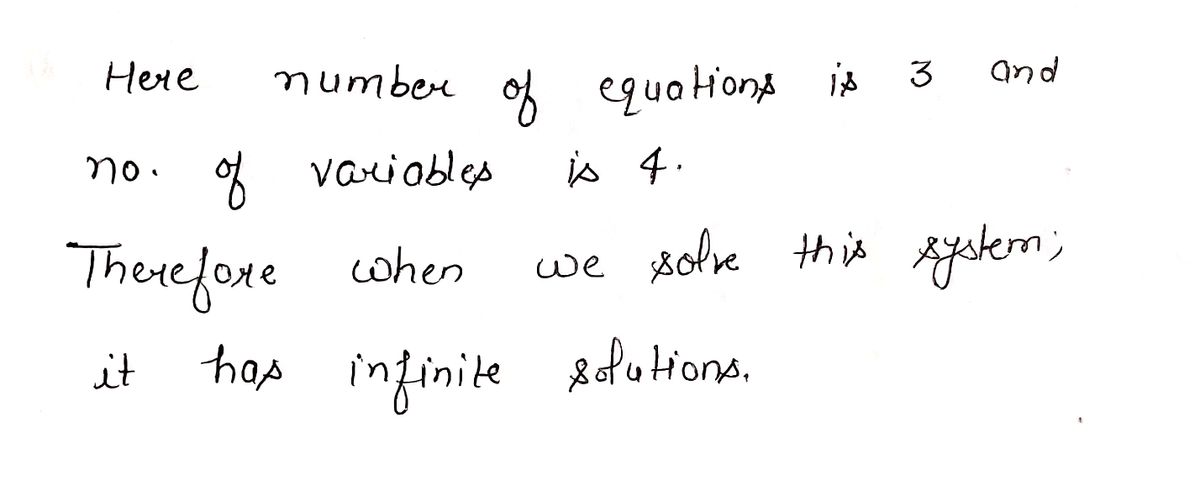 Here number of equations is 3 and
no. of variables is 4.
Therefore when we solve this system;
it has infinite solutions.